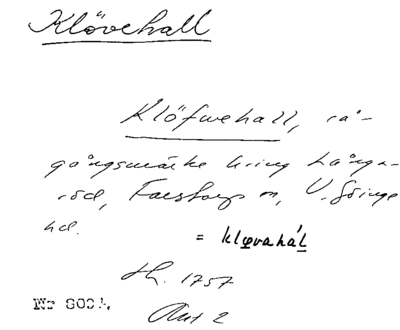 Klövehall
Klöfwehall, rå-
gångsmärke kring Långa-
röd, Farstorps sn, V. Göinge
hd.
= kløvahál
Lh. 1757
Akt 2